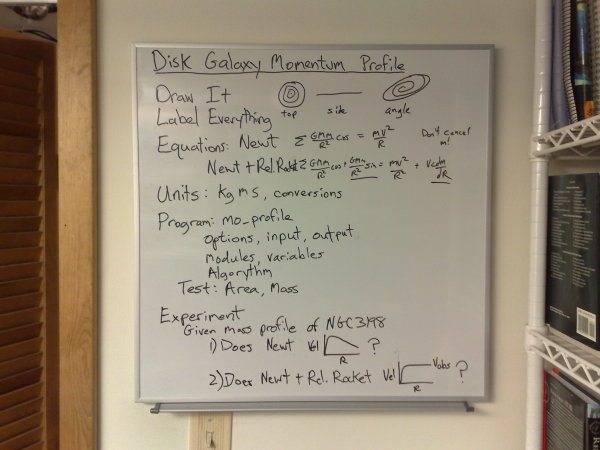 Disk Galaxy Momentum Profile
Draw It
top side angle
Label Everything
Equations: Newt Σ GMm/R² cos = mv²/R Don't cancel m!
Newt + Rel. Rock Σ GMm/R² cos + GMm/R² sin = mv²/R + vcdm/dR
Units: kg m s, conversions
Program: mo_profile
options, input, output
modules, variables
Algorythm
Test: Area, Mass
Experiment
Given mass profile of NGC3198
1) Does Newt Vel R ?
2) Does Newt + Rel. Rocket Vel R Vobs ?